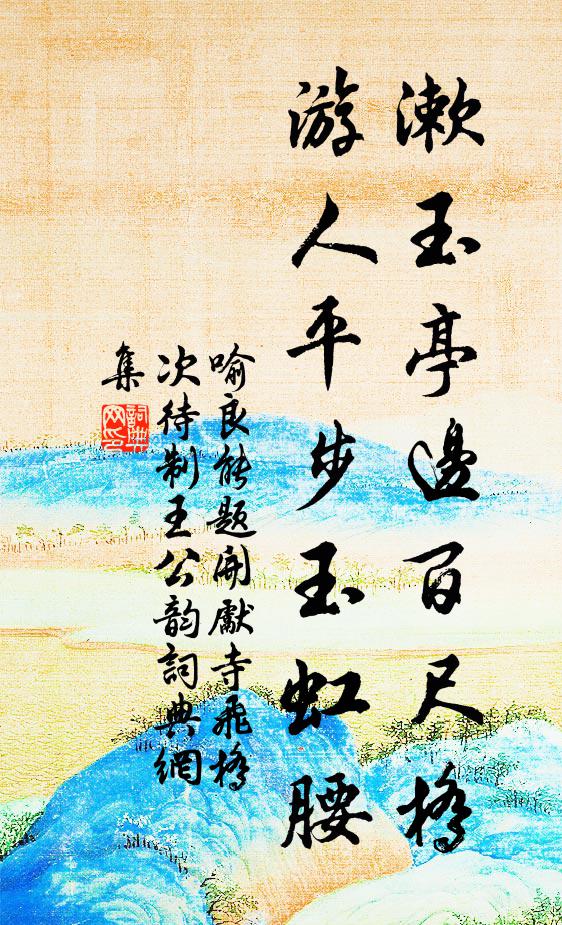 漱玉亭邊百尺橋
游人平步玉虹腰
喻良能題開獻寺飛橋
次待制王公韵詞典網
集
詞典网印